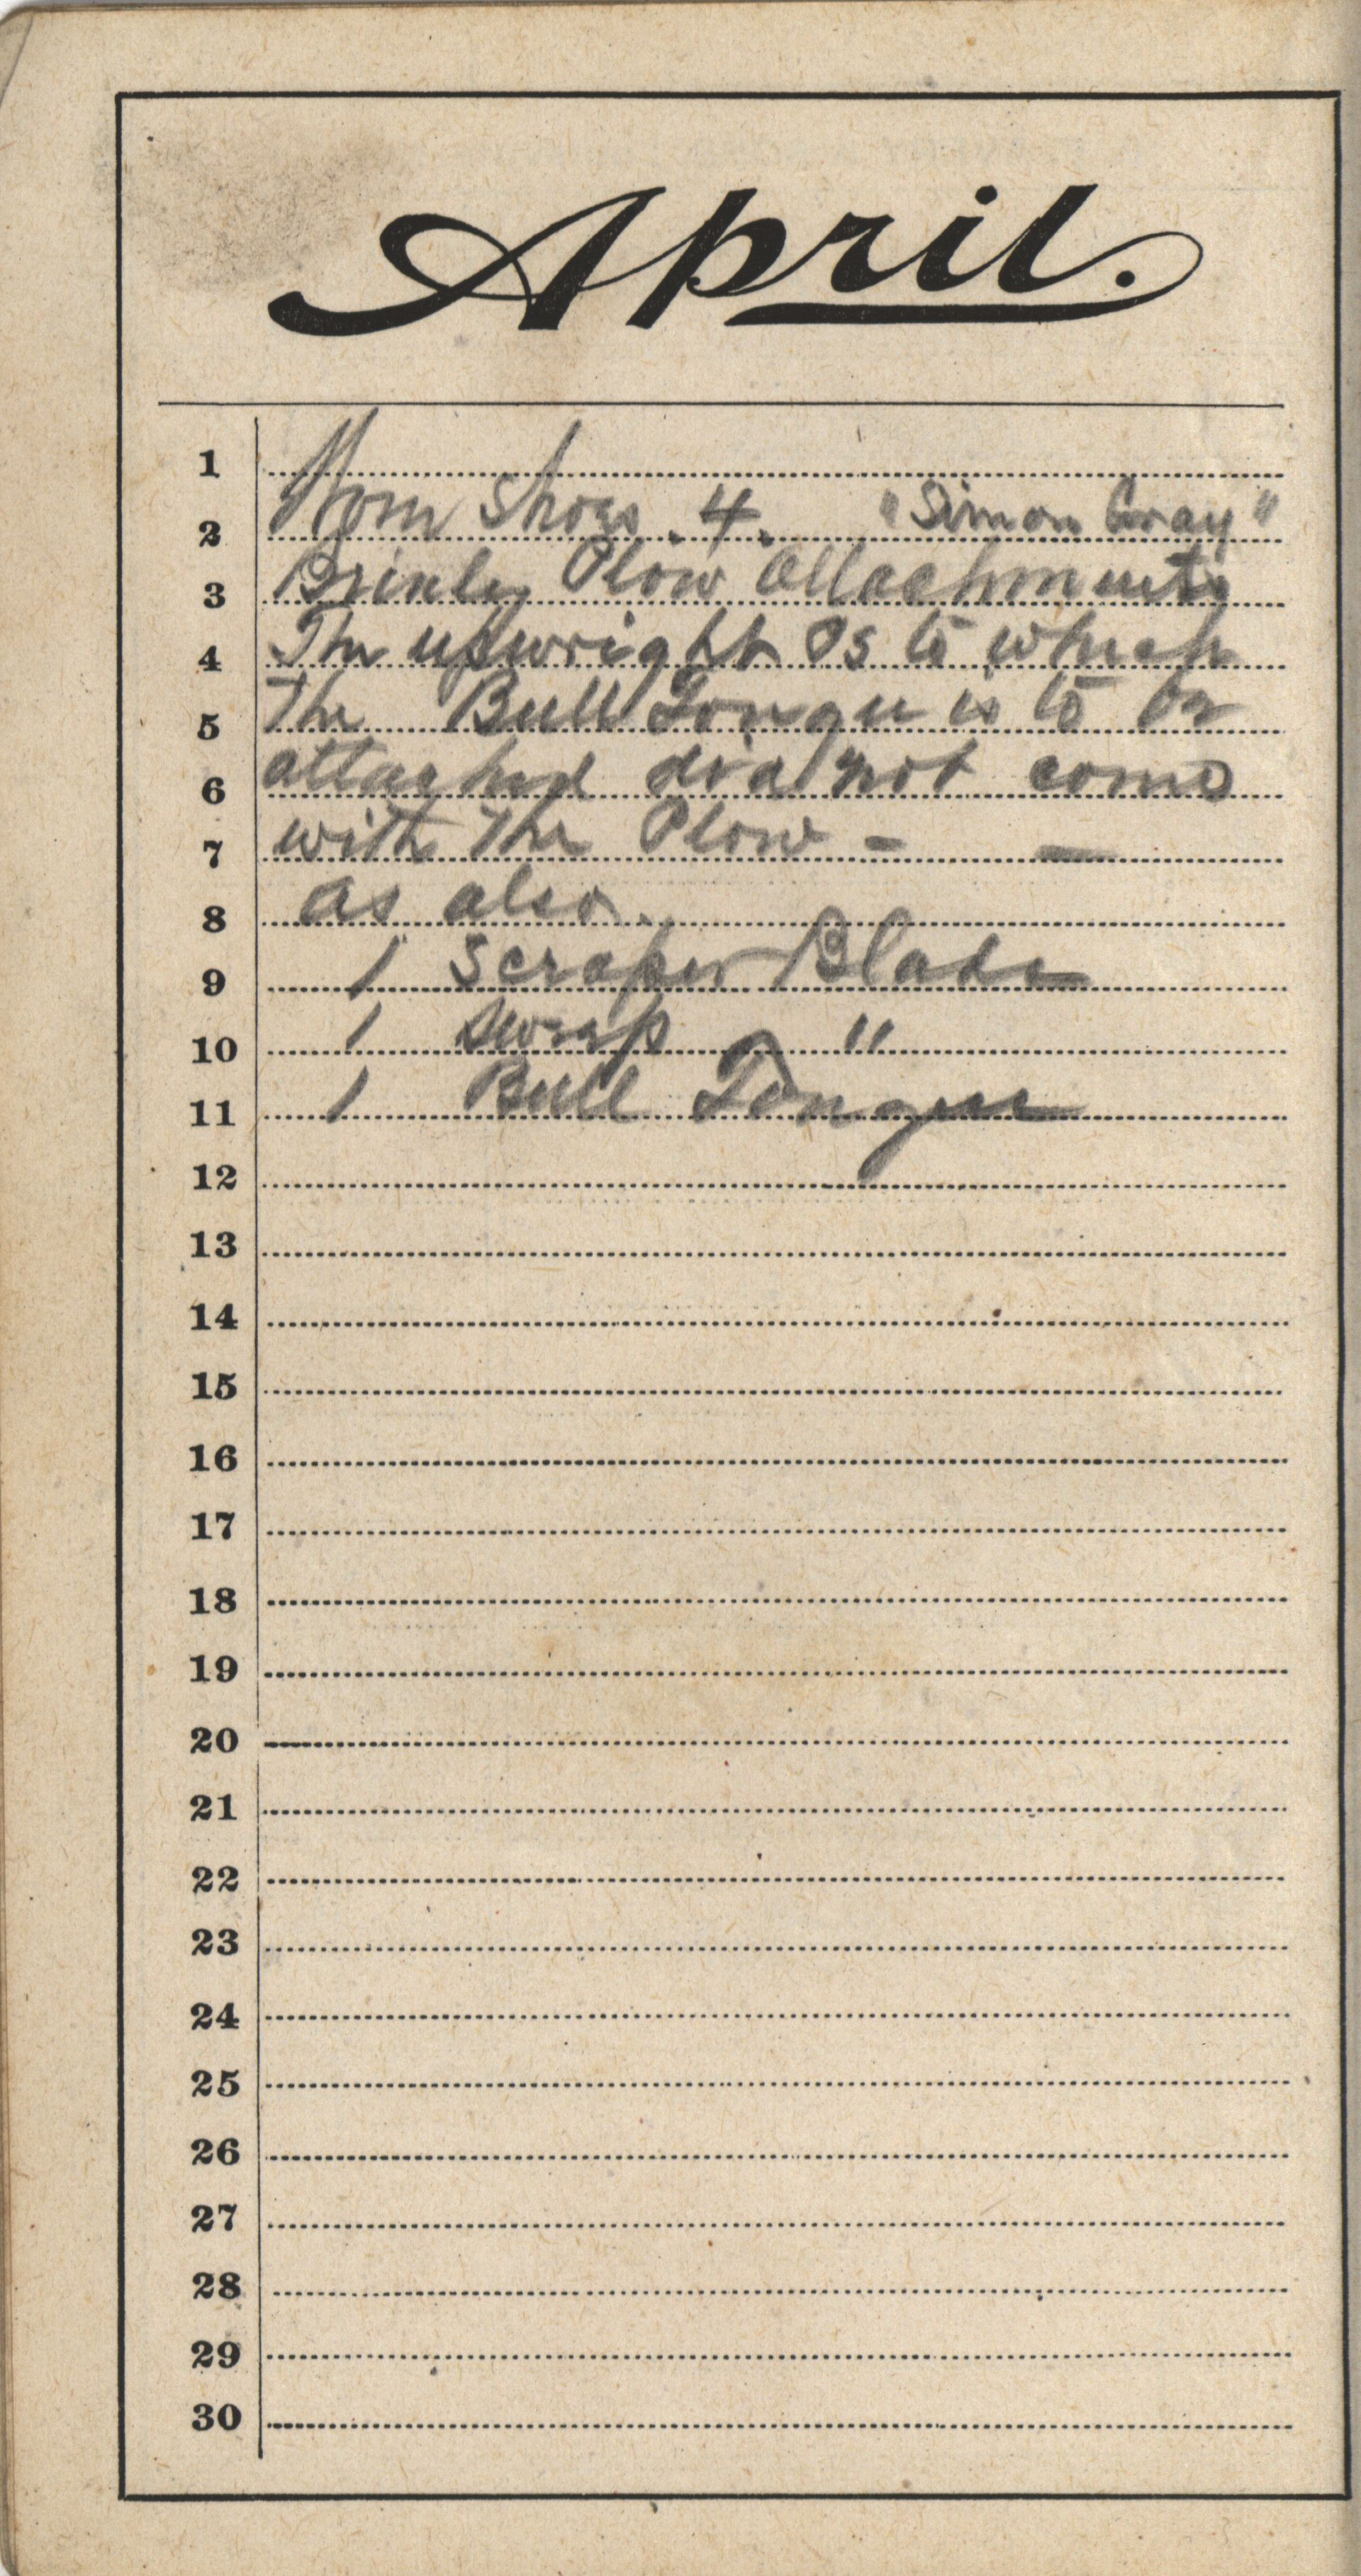 April.
1
2 Worn Shoes. 4. "Simon Gray"
3 Brinley Plow Attachments
4 The upwright Os to which
5 The Bull Tongue is to be
6 attached did not come
7 with The Plow - —
8 as also.
9 1 Scraper Blade
10 1 "
11 1 Bull Tongue
12
13
14
15
16
17
18
19
20
21
22
23
24
25
26
27
28
29
30